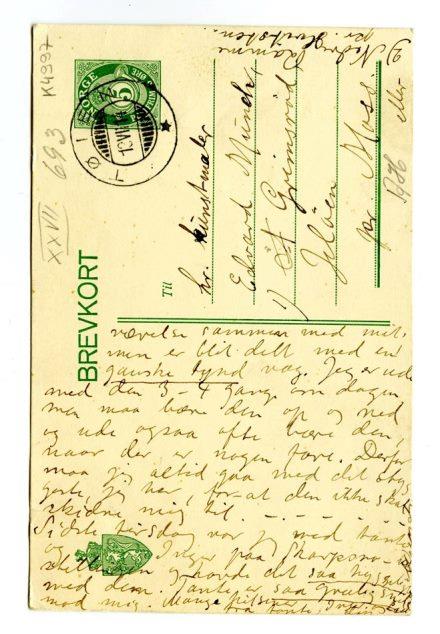 BREVKORT
NORGE
5
ØRE
LØTEN
Til
hr. kunstmaler
Edvard Munch
1) Grimsrød
Jeløen
pr. Moss.
eller
2) Nedre Ramme
pr. Hvitsten.
K4997
XXVII 693
værelse sammen med mit.
men er blit delt med en
ganske tynd væg. Jeg er ude
med den 3-4 gang om dagen,
men maa bære den op og ned
og ude ogsaa ofte bære den,
naar der er nogen fare. Derfor
maa jeg altid gaa med det
jeg har, for at den ikke skal
skidne mig til. - - - -
Sidste tersdag var jeg med tante
og Inger paa
og havde det saa hyggelig
med dem. Tante er saa
mod mig. Mange hilsener
fra tante, Inger og